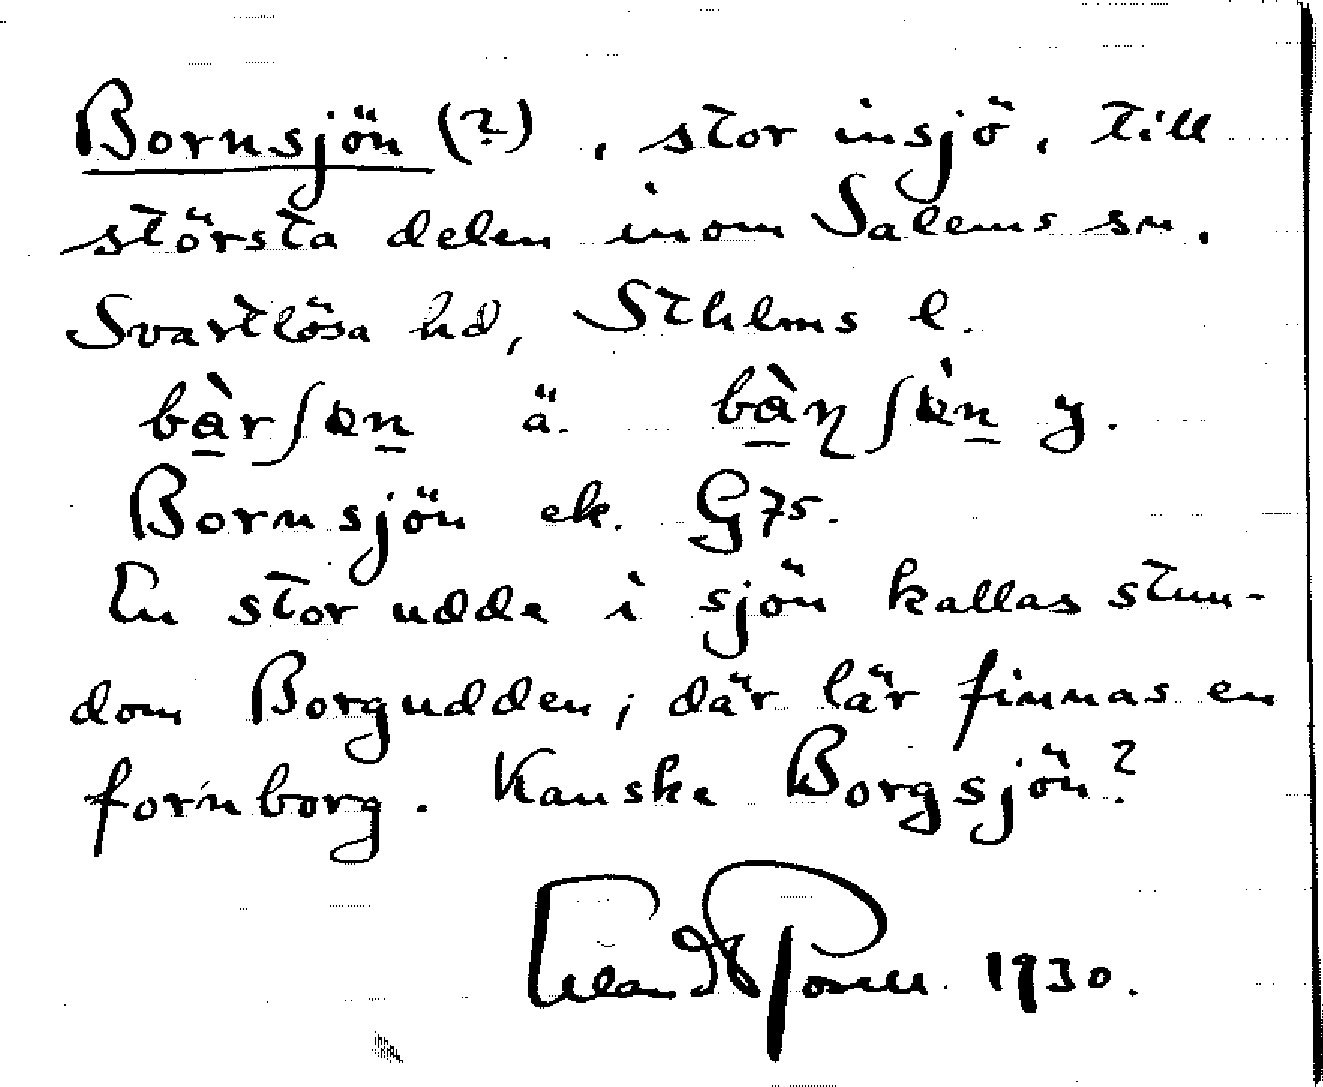 Bornsjön (?), stor insjö, till
största delen inom Salems sn.
Svartlösa hd, Sthlms l.
ä. y.
Bornsjön ek. G75.
En stor udde i sjön kallas stun-
dom Borgudden; där lär finnas en
fornborg. Kanske Borgsjön?
1930.